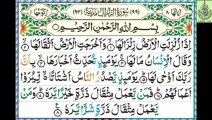 بِسْمِ اللَّهِ الرَّحْمَٰنِ الرَّحِيمِ
إِذَا زُلْزِلَتِ الْأَرْضُ زِلْزَالَهَا ۝ وَأَخْرَجَتِ الْأَرْضُ أَثْقَالَهَا ۝
وَقَالَ الْإِنْسَانُ مَا لَهَا ۝ يَوْمَئِذٍ تُحَدِّثُ أَخْبَارَهَا ۝
بِأَنَّ رَبَّكَ أَوْحَىٰ لَهَا ۝ يَوْمَئِذٍ يَصْدُرُ النَّاسُ أَشْتَاتًا لِيُرَوْا
أَعْمَالَهُمْ ۝ فَمَنْ يَعْمَلْ مِثْقَالَ ذَرَّةٍ خَيْرًا يَرَهُ ۝ وَمَنْ
يَعْمَلْ مِثْقَالَ ذَرَّةٍ شَرًّا يَرَهُ ۝